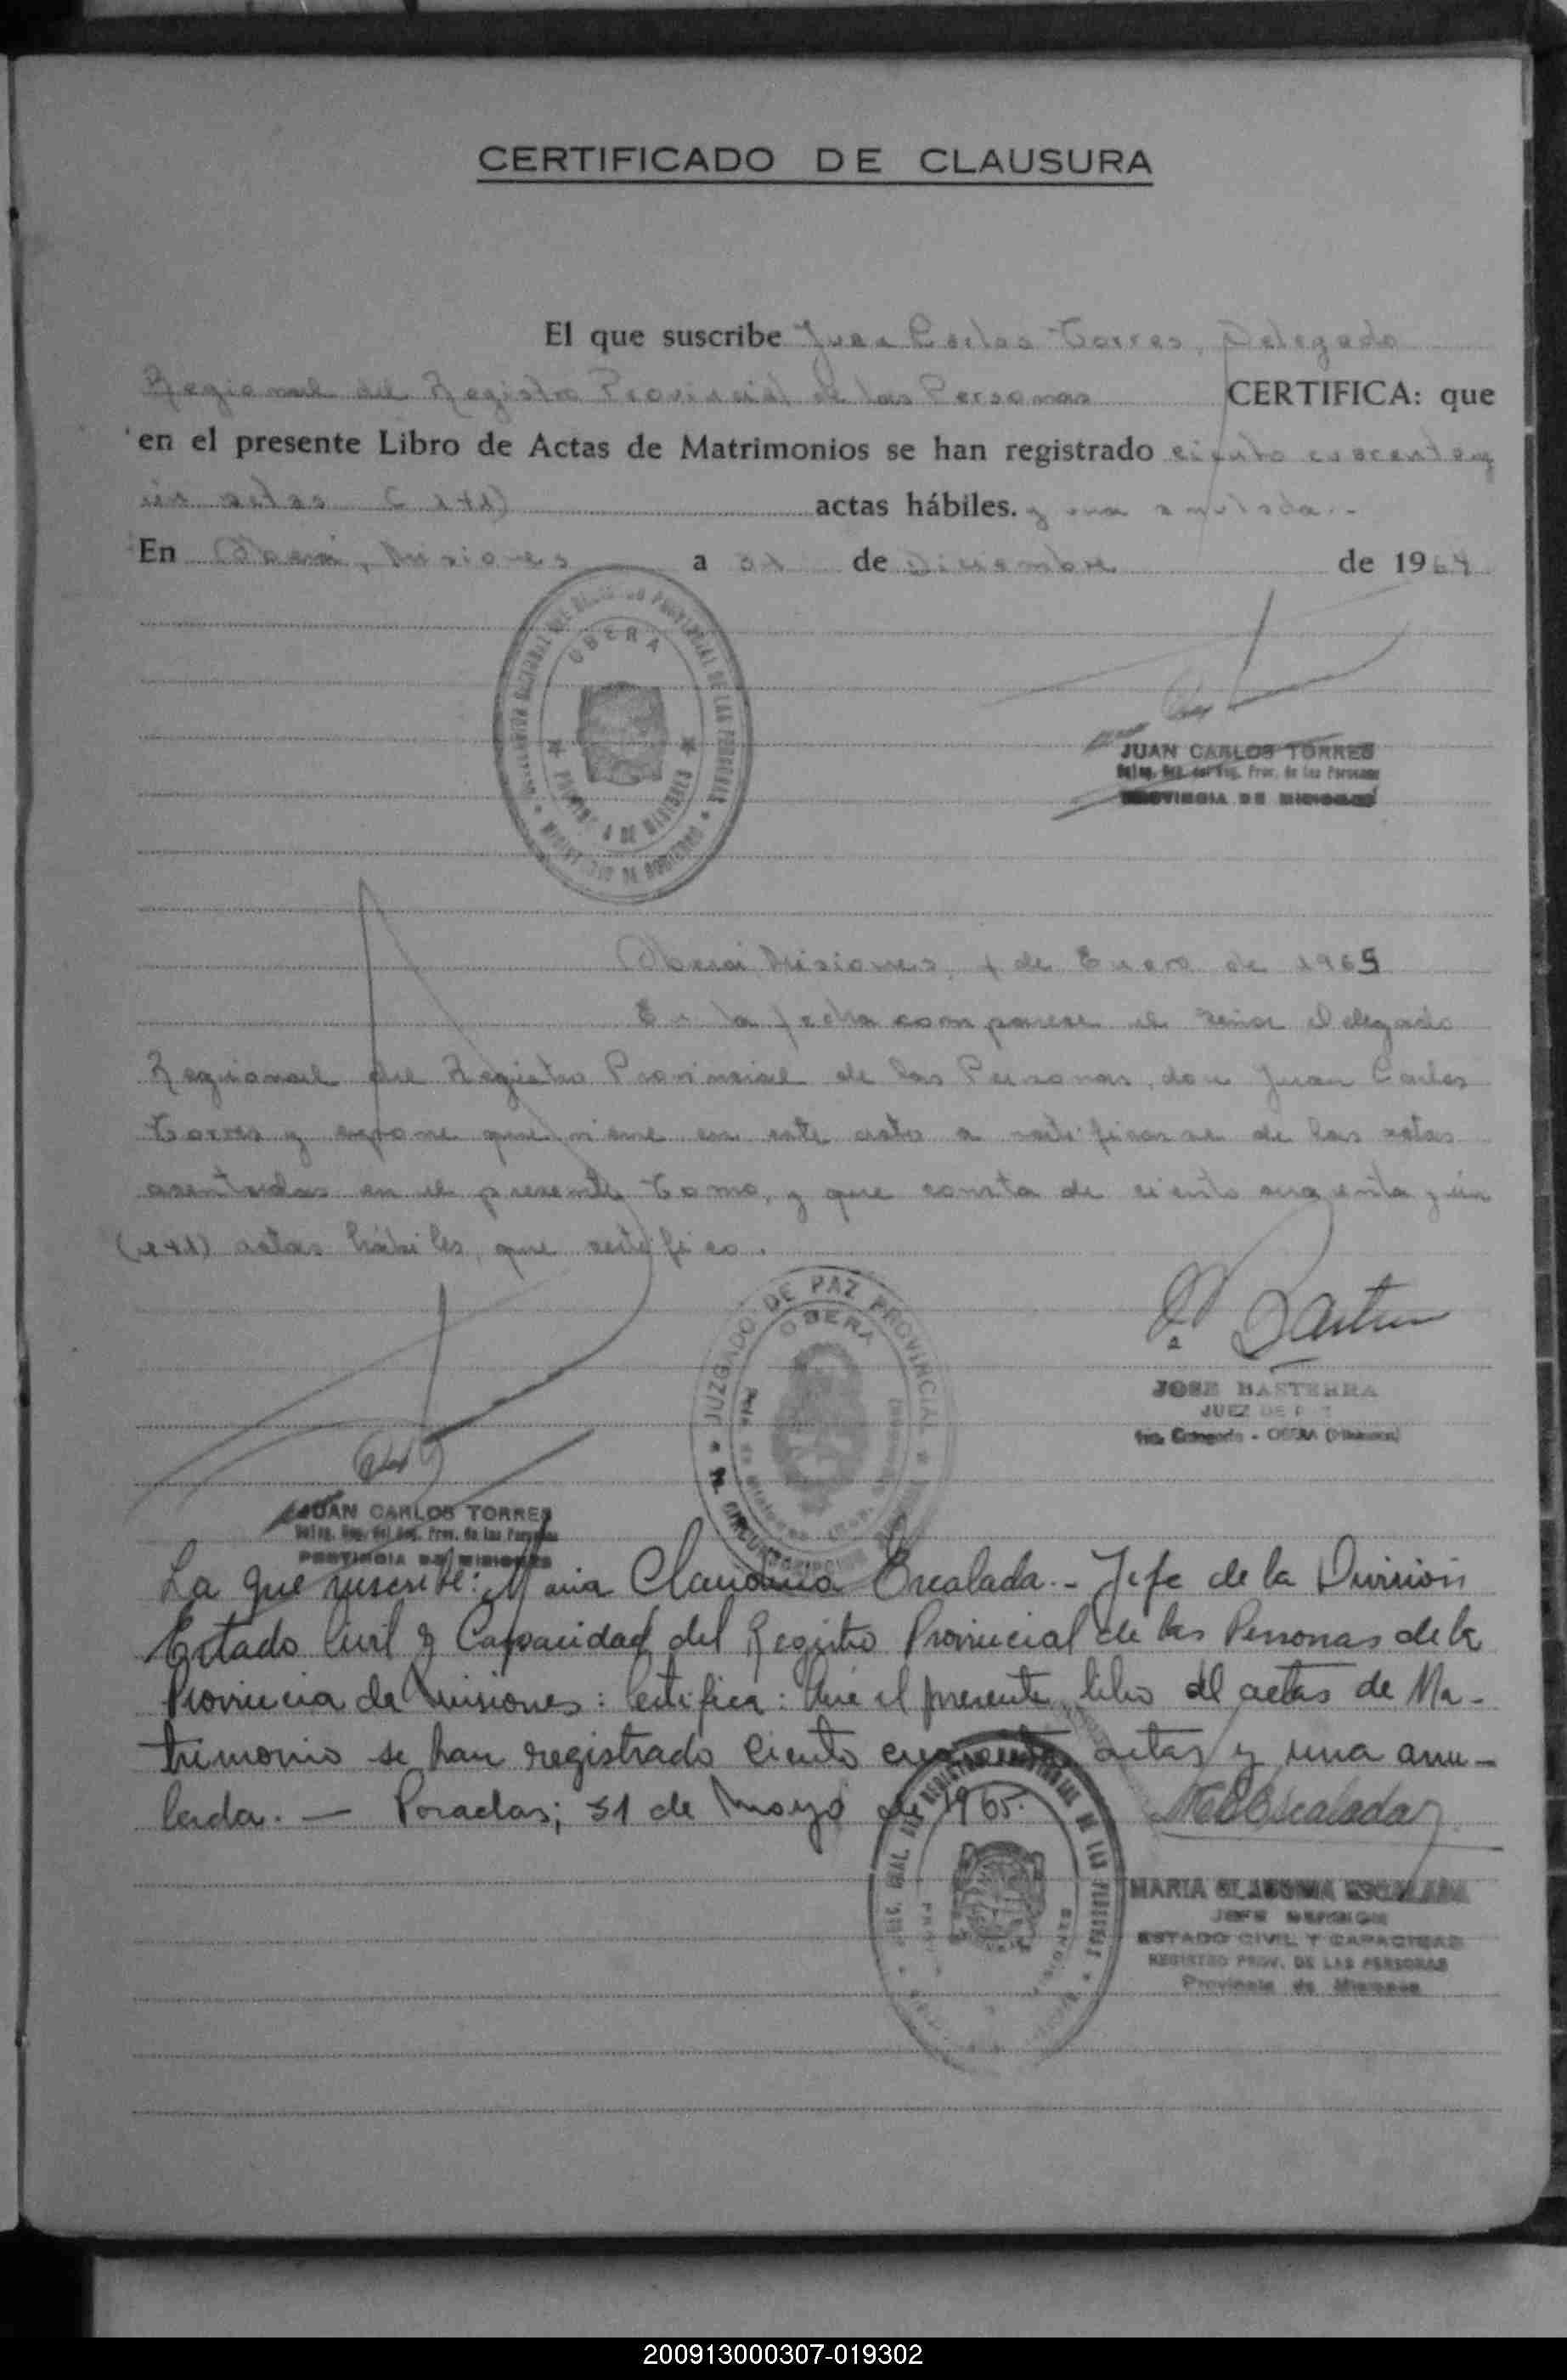 CERTIFICADO DE CLAUSURA
El que suscribe Juan Carlos Torres, Delegado
Regional del Registro Provincial de las Personas CERTIFICA: que
en el presente Libro de Actas de Matrimonios se han registrado ciento cuarenta y
ún actas (141) actas hábiles. y una anulada.-
En Oberá, Misiones a 31 de Diciembre de 1964
OBERA
JUAN CARLOS TORRES
Deleg. Reg. del Reg. Prov. de las Personas
PROVINCIA DE MISIONES
Oberá, Misiones, 1 de Enero de 1965
En la fecha comparece el señor Delegado
Regional del Registro Provincial de las Personas, don Juan Carlos
Torres y expone que viene en este acto a ratificarse de las actas
asentadas en el presente Tomo, y que consta de ciento cuarenta y ún
(141) actas hábiles, que certifico.
JUZGADO DE PAZ PROVINCIAL
OBERA
JOSE BASTERRA
JUEZ DE PAZ
1ra. Categoria - OBERA (Misiones)
JUAN CARLOS TORRES
Deleg. Reg. del Reg. Prov. de las Personas
PROVINCIA DE MISIONES
La que suscribe: Maria Claudina Escalada.- Jefe de la División
Estado Civil y Capacidad del Registro Provincial de las Personas de la
Provincia de Misiones: Certifica: Que el presente libro de actas de Ma-
trimonio se han registrado ciento cuarenta actas y una anu-
lada. — Posadas; 31 de Mayo de 1965.
MCEscalada
MARIA CLAUDINA ESCALADA
JEFE DIVISION
ESTADO CIVIL Y CAPACIDAD
REGISTRO PROV. DE LAS PERSONAS
Provincia de Misiones
200913000307-019302